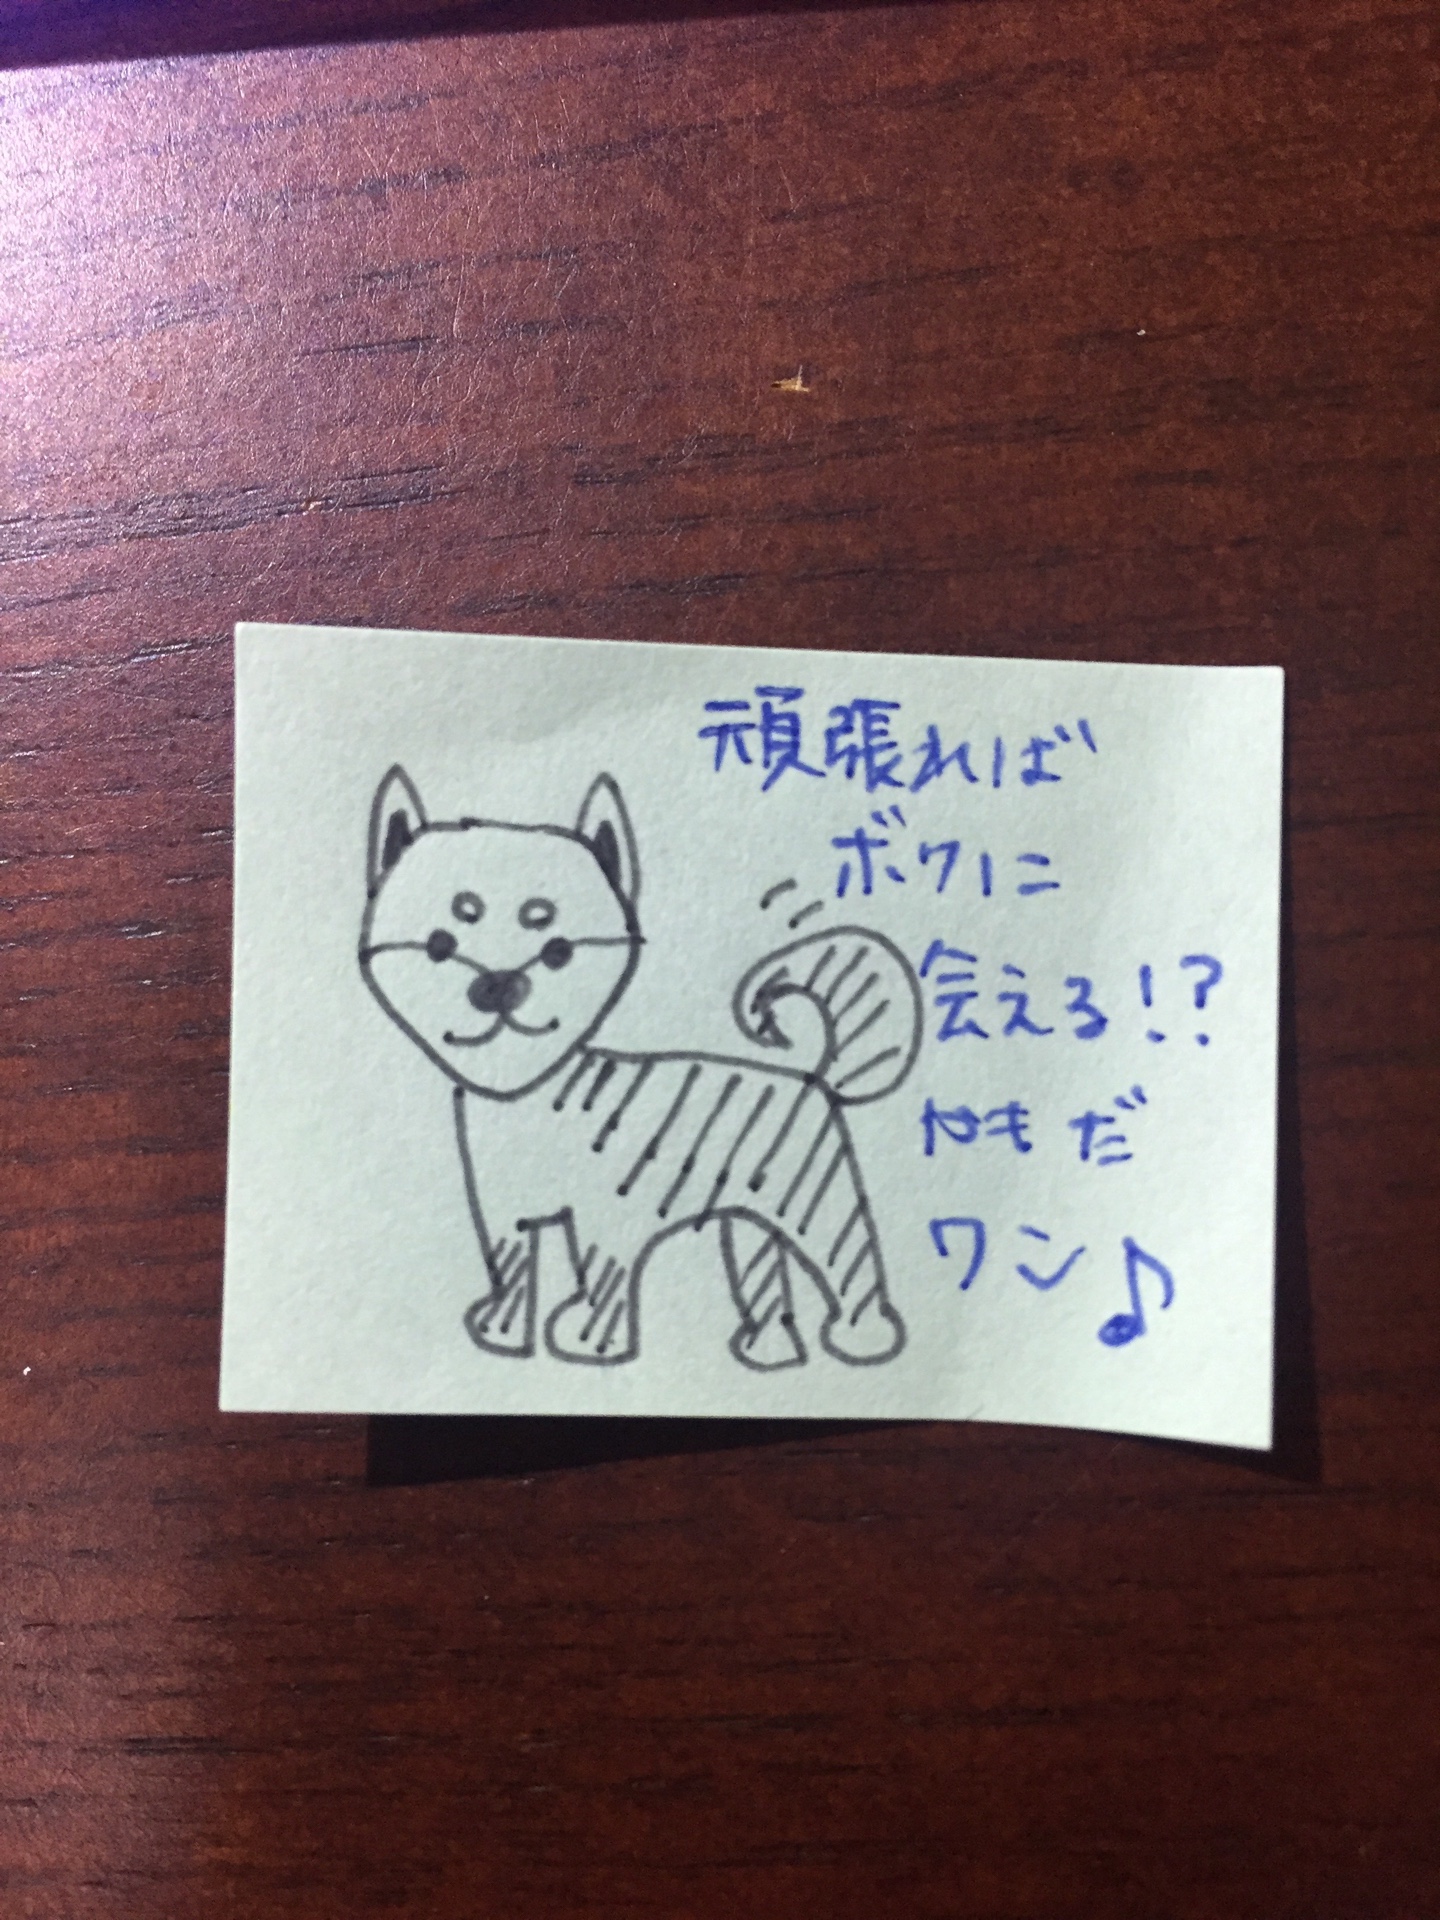 頑張れば
ボクに
会える!?
かもだ
ワン♪